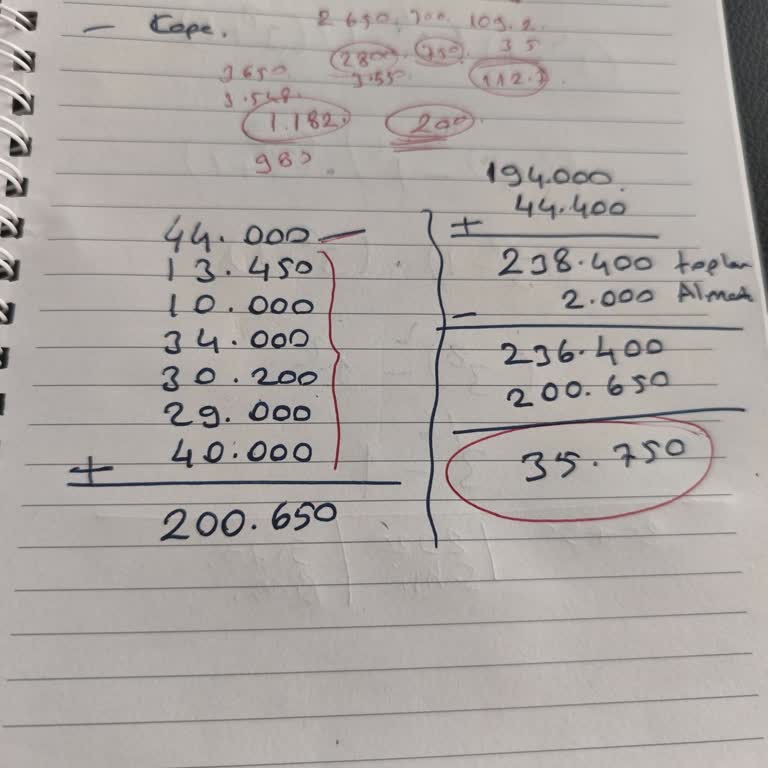 — Kape.
2 650. 700. 109.2
35
280. 750.
3650
3.55
112.7
3.548.
1.182. 200.
980.
44.000 —
13.450
10.000
34.000
30.200
29.000
+ 40.000
200.650
194.000.
+ 44.400
238.400 toplam
- 2.000 Alınacak
236.400
200.650
35.750